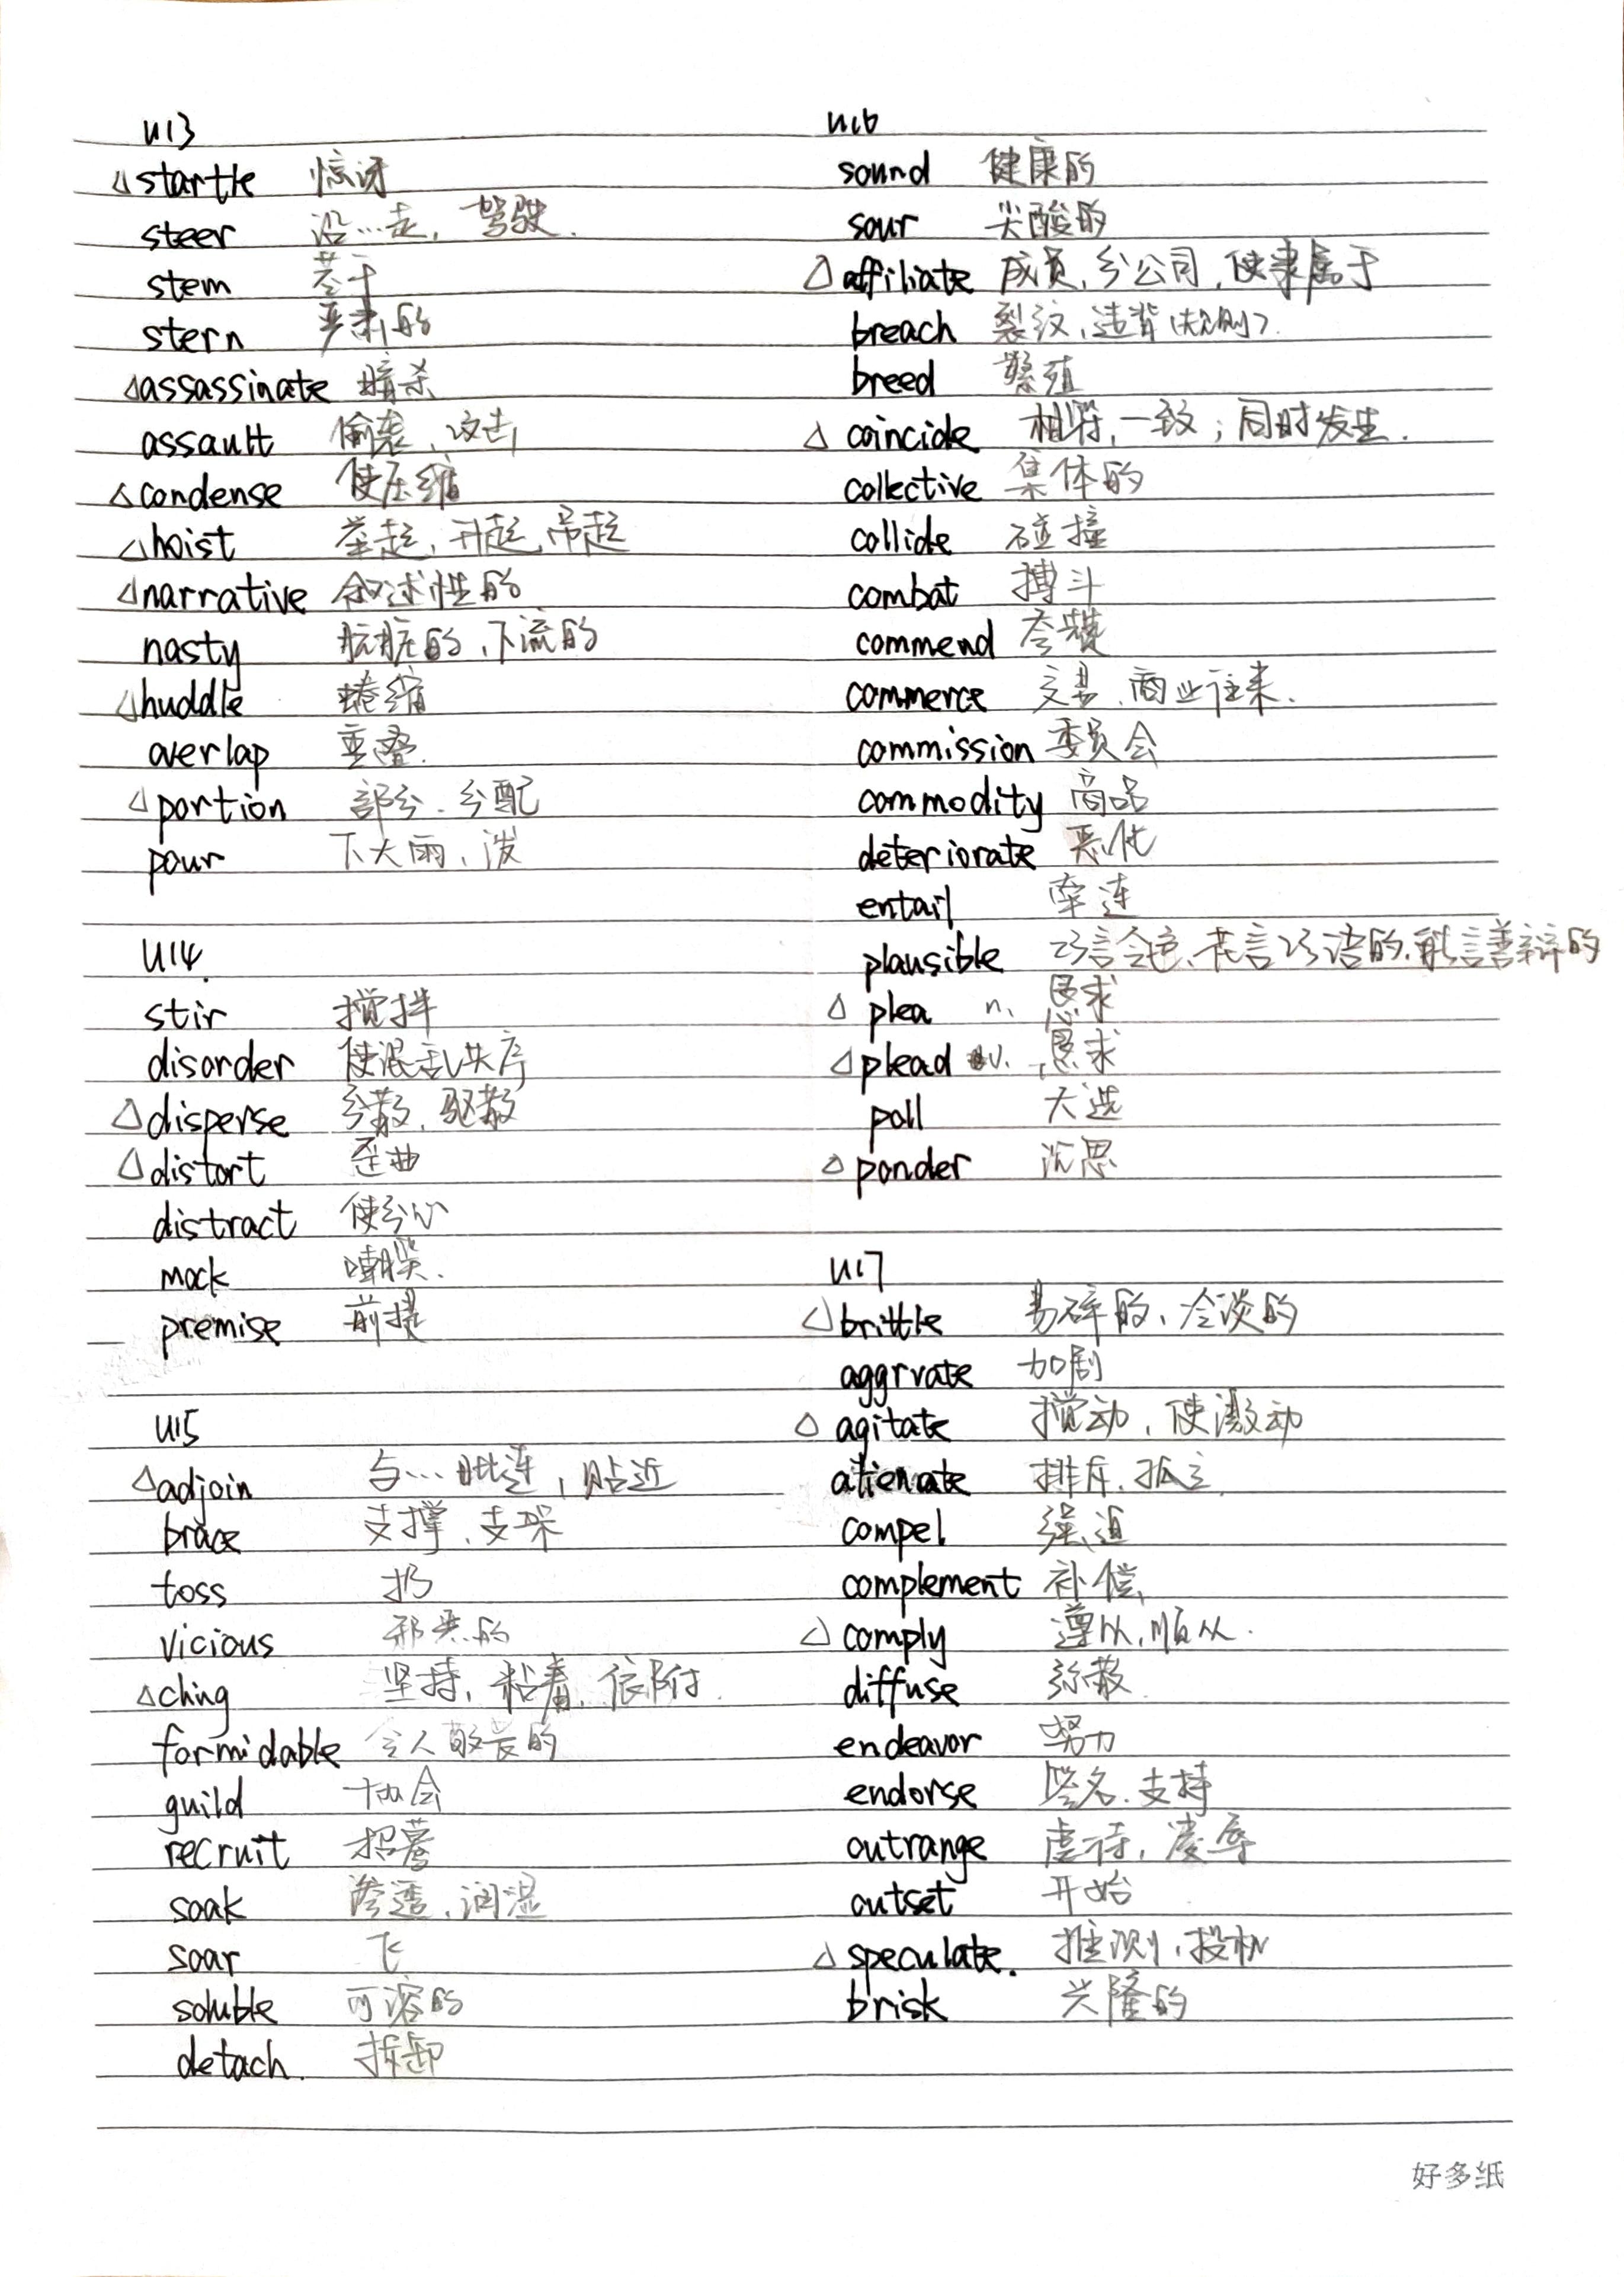 U13
△startle 惊讶
steer 沿…走, 驾驶.
stem 茎干
stern 严肃的
△assassinate 暗杀
assault 偷袭、攻击
△condense 使压缩
△hoist 举起, 升起, 吊起
△narrative 叙述性的
nasty 肮脏的、下流的
△huddle 蜷缩
overlap 重叠.
△portion 部分. 分配
pour 下大雨、泼
U14.
stir 搅拌
disorder 使混乱失序
△disperse 分散, 驱散
△distort 歪曲
distract 使分心
mock 嘲笑.
premise 前提
U15
△adjoin 与…毗连, 贴近
brace 支撑、支架
toss 扔
vicious 邪恶的
△cling 坚持, 粘着, 依附
formidable 令人敬畏的
guild 协会
recruit 招募
soak 渗透、润湿
soar 飞
soluble 可溶的
detach. 拆卸
U16
sound 健康的
sour 尖酸的
△affiliate 成员, 分公司, 使隶属于
breach 裂纹, 违背(规则).
breed 繁殖
△coincide 相符, 一致; 同时发生.
collective 集体的
collide 碰撞
combat 搏斗
commend 夸赞
commerce 交易、商业往来.
commission 委员会
commodity 商品
deteriorate 恶化
entail 牵连
plausible 巧言令色、花言巧语的、能言善辩的
△plea n. 恳求
△plead v. 恳求
poll 大选
△ponder 沉思
U17
△brittle 易碎的、冷淡的
aggrvate 加剧
△agitate 搅动, 使激动
alienate 排斥、孤立
compel 强迫
complement 补偿
△comply 遵从, 顺从.
diffuse 弥散
endeavor 努力
endorse 签名. 支持
outrange 虐待, 凌辱
outset 开始
△speculate. 推测、投机
brisk 兴隆的
好多纸